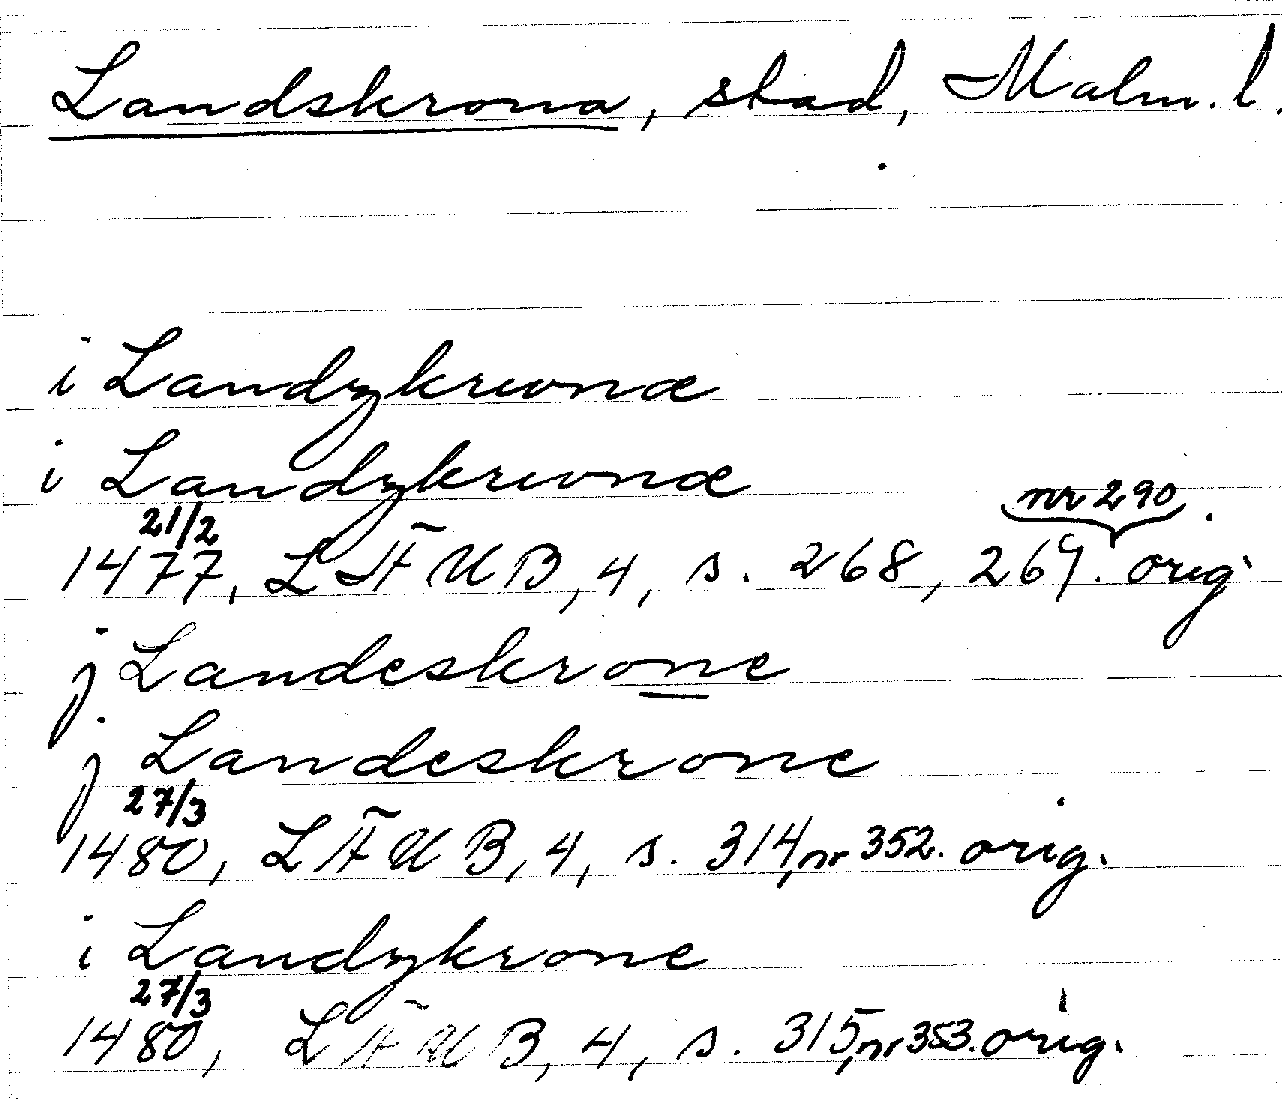 Landskrona, stad, Malm. l.
i Landzkrwnæ
i Landzkrwnæ
nr 290
21/2
1477, LÄUB, 4, s. 268, 269. orig.
j Landeskrone
j Landeskrone
27/3
1480, LÄUB, 4, s. 314, nr 352. orig.
i Landzkrone
27/3
1480, LÄUB, 4, s. 315, nr 353. orig.